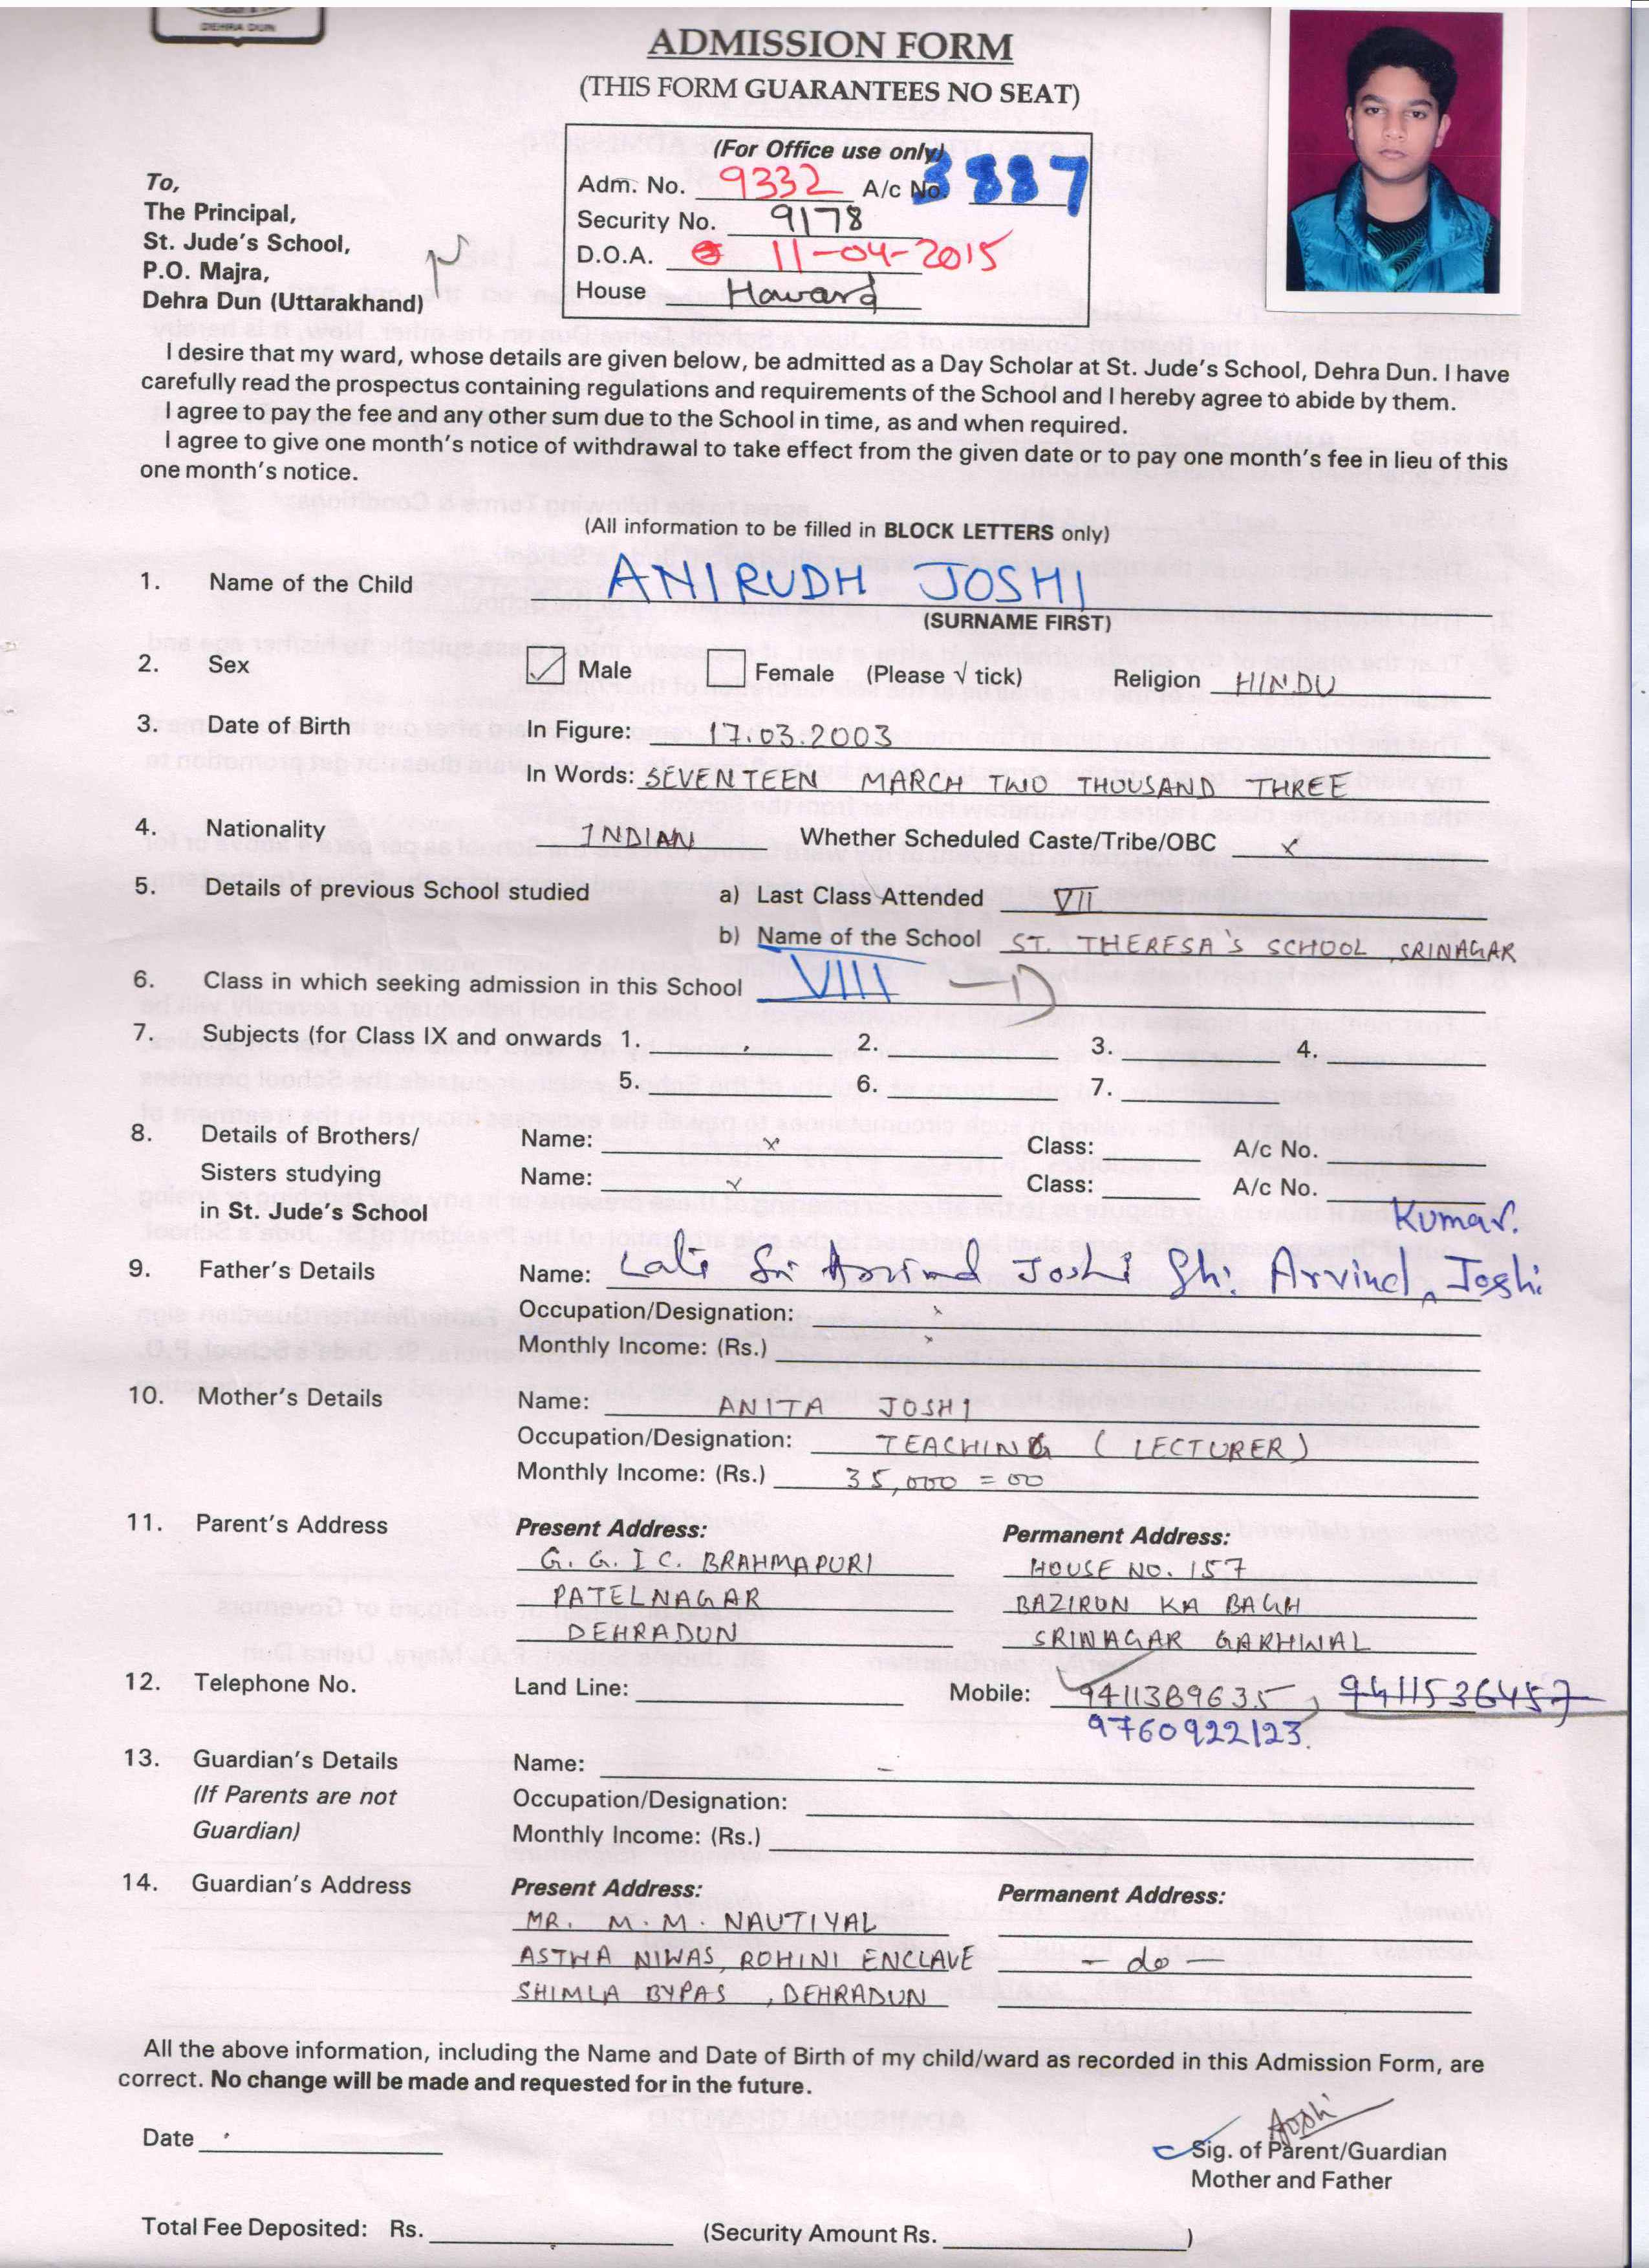 DEHRA DUN
ADMISSION FORM
(THIS FORM GUARANTEES NO SEAT)
(For Office use only)
Adm. No. 9332 A/c No. 3887
Security No. 9178
D.O.A. 11-04-2015
House Howard
To,
The Principal,
St. Jude's School,
P.O. Majra,
Dehra Dun (Uttarakhand)
I desire that my ward, whose details are given below, be admitted as a Day Scholar at St. Jude's School, Dehra Dun. I have
carefully read the prospectus containing regulations and requirements of the School and I hereby agree to abide by them.
I agree to pay the fee and any other sum due to the School in time, as and when required.
I agree to give one month's notice of withdrawal to take effect from the given date or to pay one month's fee in lieu of this
one month's notice.
(All information to be filled in BLOCK LETTERS only)
1. Name of the Child ANIRUDH JOSHI
(SURNAME FIRST)
2. Sex Male Female (Please √ tick) Religion HINDU
3. Date of Birth In Figure: 17.03.2003
In Words: SEVENTEEN MARCH TWO THOUSAND THREE
4. Nationality INDIAN Whether Scheduled Caste/Tribe/OBC x
5. Details of previous School studied a) Last Class Attended VII
b) Name of the School ST. THERESA'S SCHOOL, SRINAGAR
6. Class in which seeking admission in this School VIII - D
7. Subjects (for Class IX and onwards 1. 2. 3. 4.
5. 6. 7.
8. Details of Brothers/ Name: x Class: A/c No.
Sisters studying Name: x Class: A/c No.
in St. Jude's School
Kumar.
9. Father's Details Name: Late Sri Arvind Joshi Sh. Arvind Joshi
Occupation/Designation: x
Monthly Income: (Rs.) x
10. Mother's Details Name: ANITA JOSHI
Occupation/Designation: TEACHING (LECTURER)
Monthly Income: (Rs.) 35,000 = 00
11. Parent's Address Present Address: Permanent Address:
G. G. I C. BRAHMAPURI HOUSE NO. 157
PATELNAGAR BAZIRON KA BAGH
DEHRADUN SRINAGAR GARHWAL
12. Telephone No. Land Line: Mobile: 9411389635, 9411536457
9760922123.
13. Guardian's Details Name: -
(If Parents are not Occupation/Designation:
Guardian) Monthly Income: (Rs.)
14. Guardian's Address Present Address: Permanent Address:
MR. M. M. NAUTIYAL
ASTHA NIWAS, ROHINI ENCLAVE - do -
SHIMLA BYPAS, DEHRADUN
All the above information, including the Name and Date of Birth of my child/ward as recorded in this Admission Form, are
correct. No change will be made and requested for in the future.
Joshi
Date Sig. of Parent/Guardian
Mother and Father
Total Fee Deposited: Rs. (Security Amount Rs. )